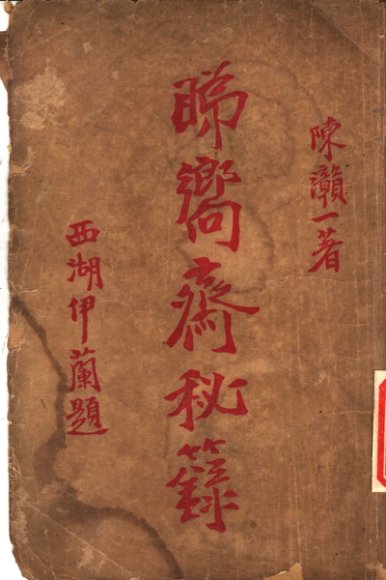 陳灨一著
睇嚮齋秘籙
西湖伊蘭題